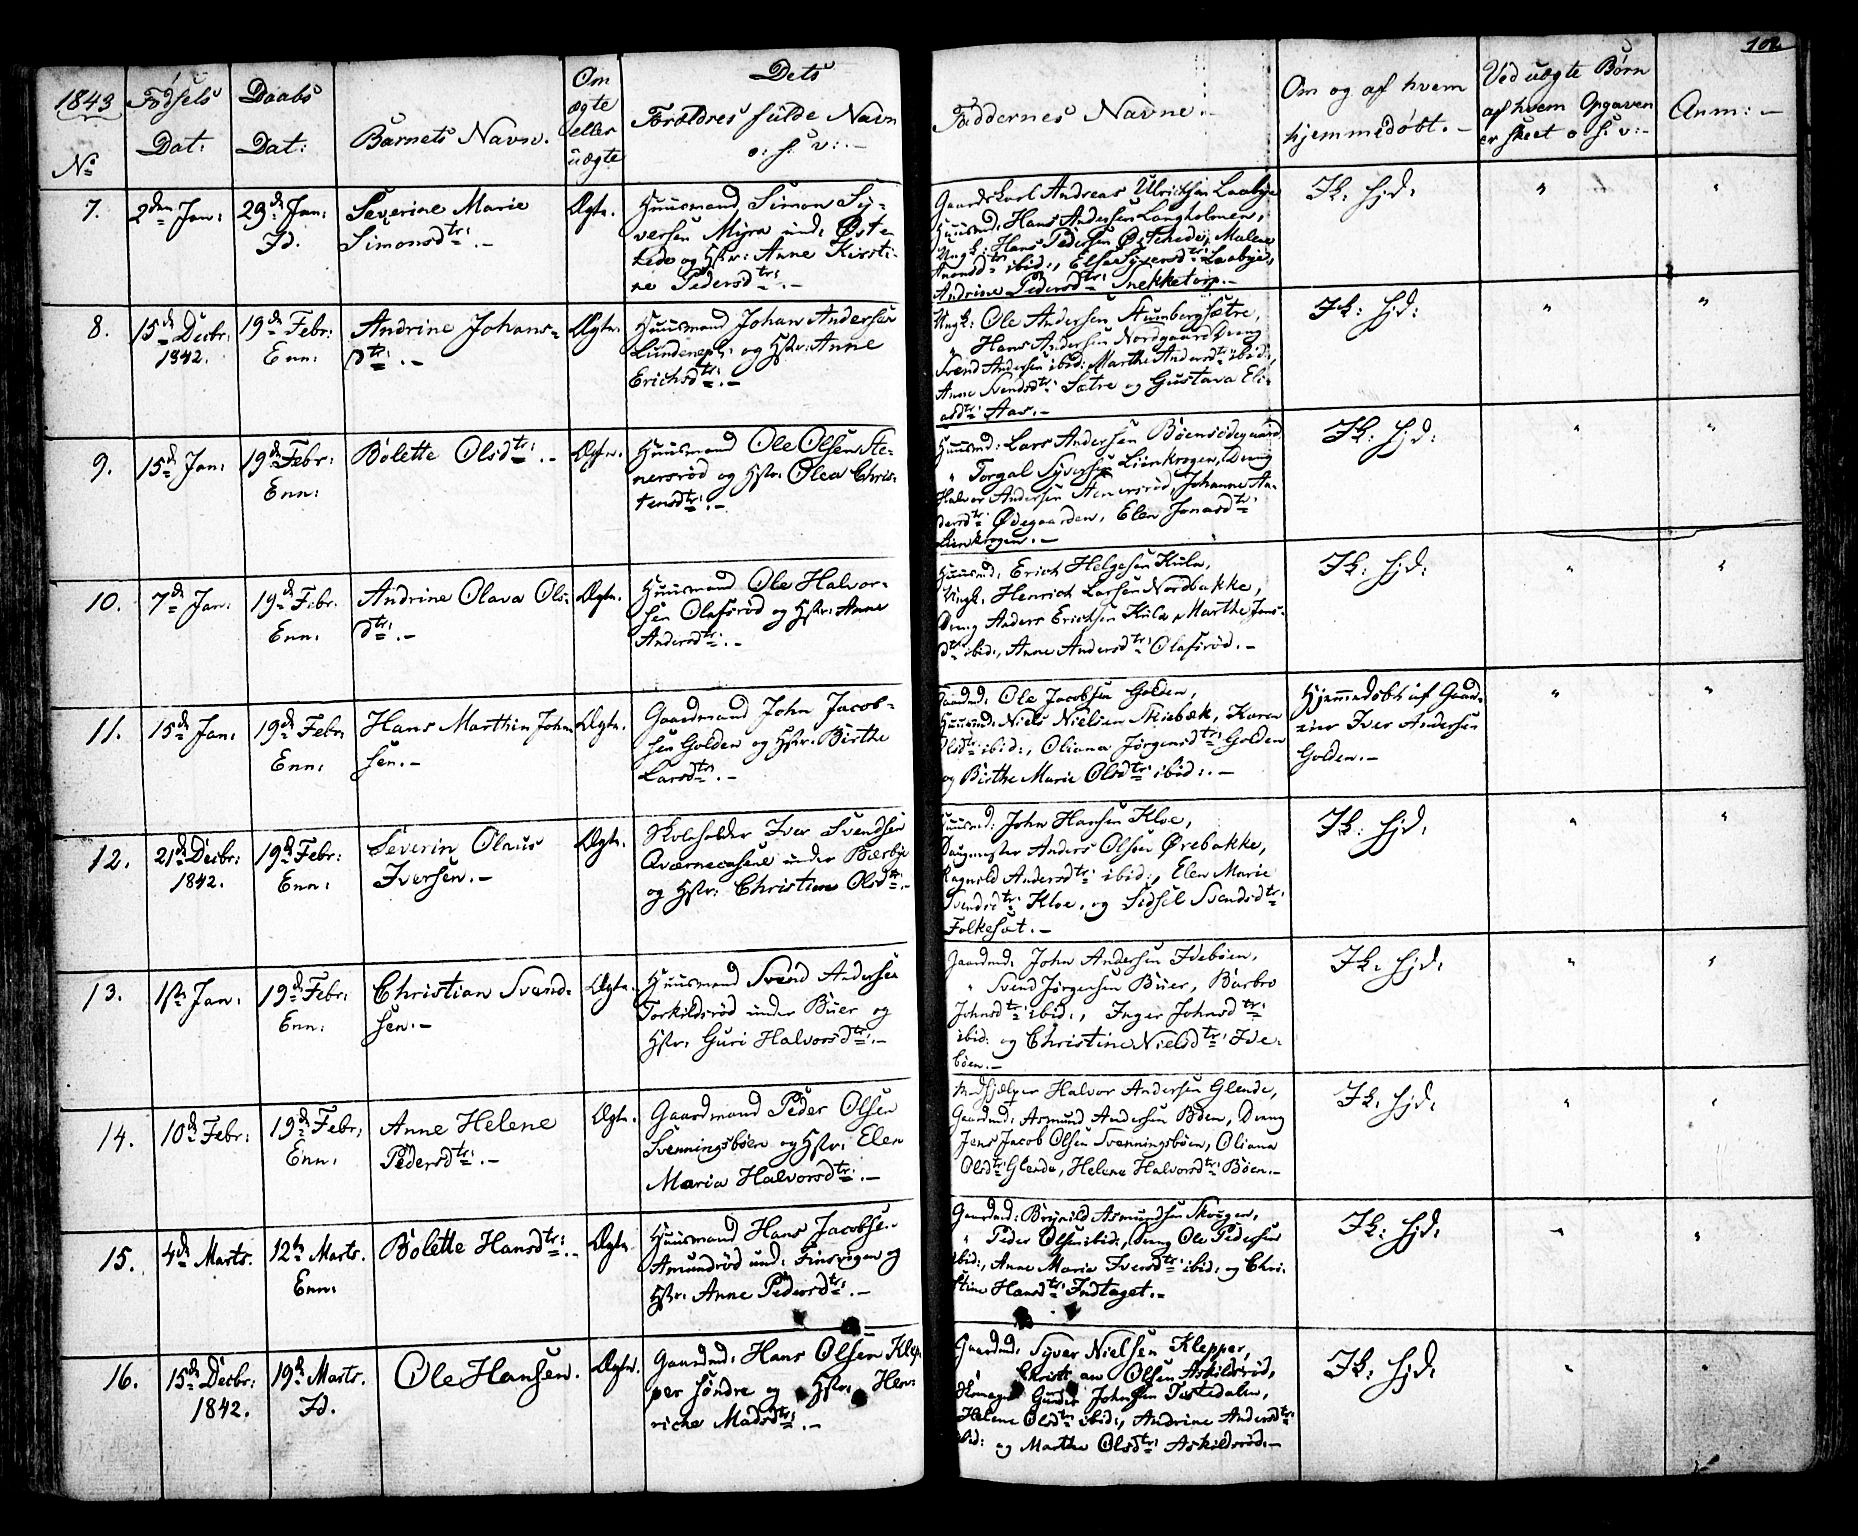 102
1843
No
Fødsels
Dat:
Daabs
Dat:
Barnets Navn.
Om
ægte
eller
uægte
Dets
Forældres fulde Navn
o: s: v: -
Faddernes Navne. -
Om og af hvem
hjemmedøbt. -
Ved uægte Børn
af hvem Opgaven
er skeet o: s: v: -
Anm: -
7.
2den Jan:
29de Jan:
Id.
Severine Marie
Simonsdtr: -
Ægte.
Huusmand Simon Sy-
versen Myra und: Øste-
hede og Hstr: Anne Kirsti-
ne Pedersdtr: -
Gaardskarl Andreas Ulrichsen Laabye
Huusmd: Hans Andersen Langholmen,
Ungk: Hans Pedersen Ø: Schede, Malene
ibid:, Else Syversdtr: Laabye,
Andrine Pedersdtr: Snekketorp. -
Ik: Hjd:
" "
8.
15de Decbr:
1842.
19de Febr:
Enn:
Andrine Johans-
dtr: -
Ægte.
Huusmand Johan Andersen
Lundenepl: og Hstr: Anne
Erichsdtr: -
Ungk: Ole Andersen Stumberg Sætre,
" Hans Andersen Nordgaard Dreng
Svend Andersen ibid: Marthe Andersdtr ibid:,
Anne Svendsdtr: Sætre og Gustava Eli-
asdtr: Aas. -
Ik: Hjd:
" "
9.
15de Jan:
19de Febr:
Enn:
Bolette Olsdtr: -
Ægte.
Huusmand Ole Olsen Ste-
nersrød og Hstr: Olea Chris-
tensdtr: -
Huusmd: Lars Andersen Bøensødegaard,
" Torgal Syversen Lienkrogen, Dreng
Halvor Andersen Stenersrød, Johanne An-
dersdtr: Ødegaarden, Elen Jonasdtr:
Lienkrogen. -
Ik: Hjd:
" "
10.
7de Jan:
19de Febr:
Enn:
Andrine Olava Ols-
dtr: -
Ægte.
Huusmand Ole Halvor-
sen Olafsrød og Hstr: Anne
Andersdtr: -
Huusmd: Erich Helgesen Kula,
Ungk: Henrich Larsen Nordbakke,
Dreng Anders Erichsen Kula, Marthe Jens-
dtr ibid:, Anne Andersdtr: Olafsrød. -
Ik: Hjd:
" "
11.
15de Jan:
19de Febr:
Enn:
Hans Marthin John-
sen. -
Ægte.
Gaardmand John Jacob-
sen Golden og Hstr: Birthe
Larsdtr: -
Gaardmd: Ole Jacobsen Golden,
Huusmd: Niels Nielsen Skiebæk, Karen
Olsdtr: ibid:, Oliana Jørgensdtr: Golden
og Birthe Marie Olsdtr: ibid: -
Hjemmedøbt af Gaard-
eier Iver Andersen
Golden. -
" "
12.
21de Decbr:
1842.
19de Febr:
Enn:
Severin Olaus
Iversen. -
Ægte.
Skoleholder Iver Svendsen
under Bærbye
og Hstr: Christine Olsdtr: -
Huusmd: John Hansen Kloe,
Saugmester Anders Olsen Ørebakke,
Ragnild Andersdtr: ibid:, Elen Marie
Svendsdtr: Kloe, og Sidsel Svendsdtr:
Folkesæt. -
Ik: Hjd:
" "
13.
1ste Jan:
19de Febr:
Enn:
Christian Svend-
sen. -
Ægte.
Huusmand Svend Andersen
Torkildsrød under Buer og
Hstr: Guri Halvorsdtr: -
Gaardmd: John Andersen Idebøen,
" Svend Jørgensen Buer, Barbro
Johnsdtr: ibid:, Inger Johnsdtr:
ibid: og Christine Nielsdtr: Ide-
bøen. -
Ik: Hjd:
" "
14.
10de Febr:
19de Febr:
Enn:
Anne Helene
Pedersdtr: -
Ægte.
Gaardmand Peder Olsen
Svenningsbøen og Hstr: Elen
Maria Halvorsdtr: -
Medhjælper Halvor Andersen Glende,
Gaardmd: Asmund Andersen Bøen, Dreng
Jens Jacob Olsen Svenningsbøen, Oliana
Olsdtr: Glende, Helene Halvorsdtr: Bøen. -
Ik: Hjd:
" "
15.
4de Marts.
12te Marts.
Enn:
Bolette Hansdtr: -
Ægte.
Huusmand Hans Jacobsen
Amundrød und: Finsvigen og
Hstr: Anne Pedersdtr: -
Gaardmd: Brynild Asmundsen Skougen,
" Peder Olsen ibid:, Dreng Ole Pedersen
ibid:, Anne Maria Iversdtr: ibid: og Chri-
stine Hansdtr: Indtaget. -
Ik: Hjd:
" "
16.
15de Decbr:
1842.
19de Marts.
Id.
Ole Hansen.
Ægte.
Gaardmd: Hans Olsen Klep-
per søndre og Hstr: Hen-
riche Madsdtr: -
Gaardmd: Syver Nielsen Klepper,
Olsen Askildsrød,
Gunder Johnsen Tistedalen,
Helene Olsdtr: ibid:, Andrine Andersdtr:
ibid: og Marthe Olsdtr: Askildsrød. -
Ik: Hjd:
" "